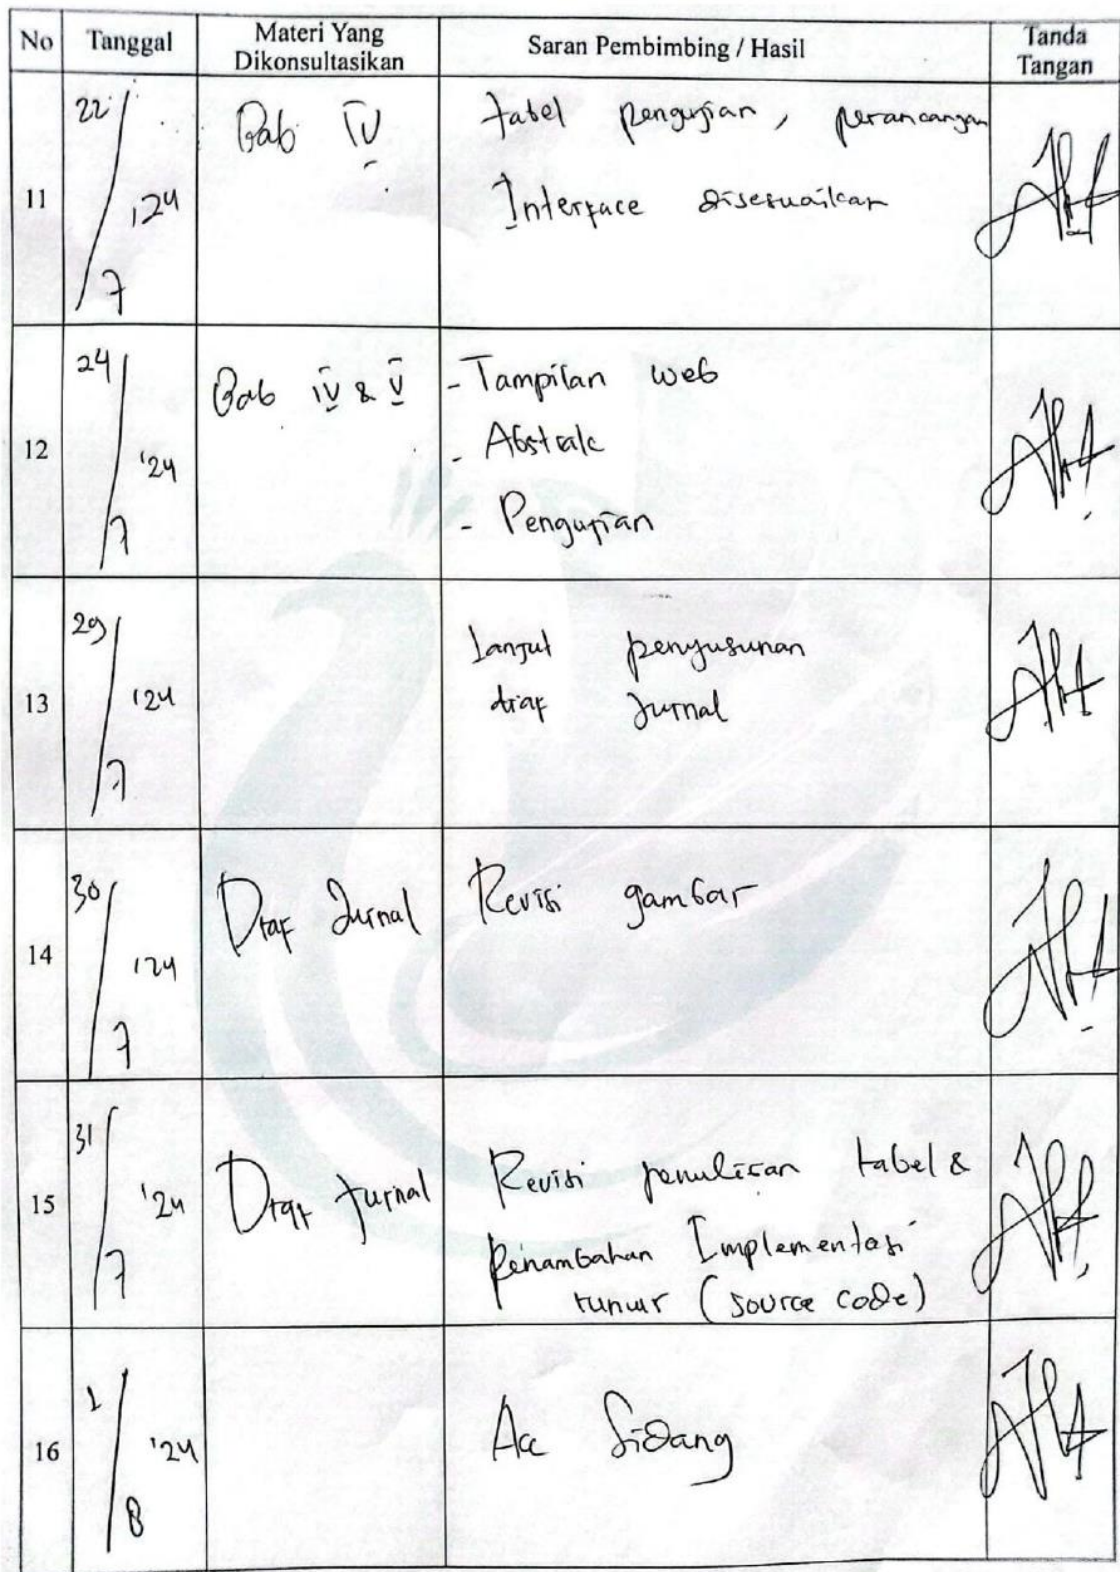 No Tanggal Materi Yang Dikonsultasikan Saran Pembimbing / Hasil Tanda Tangan
11 22/7 '24 Bab IV tabel pengujian, perancangan
Interface disesuaikan
12 24/7 '24 Bab IV & V - Tampilan web
- Abstrak
- Pengujian
13 29/7 '24 Lanjut penyusunan
draf Jurnal
14 30/7 '24 Draf Jurnal Revisi gambar
15 31/7 '24 Draf Jurnal Revisi penulisan tabel &
Penambahan Implementasi
(source code)
16 1/8 '24 Acc Sidang